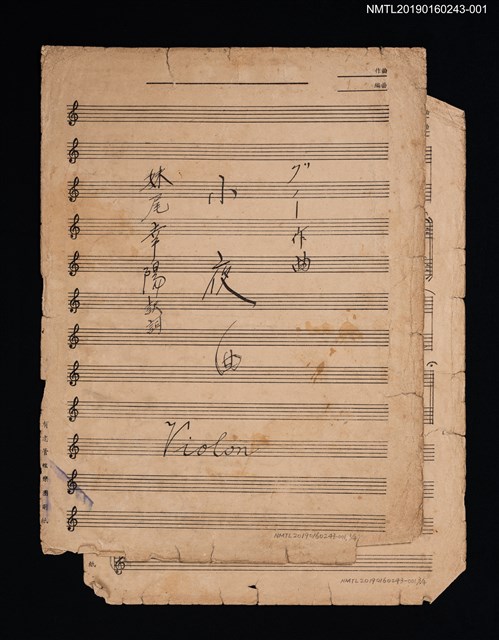 NMTL20190160243-001
作曲
編曲
グノー作曲
小夜曲
妹尾幸陽訳詞
Violon
NMTL20190160243-001
NMTL20190160243-001